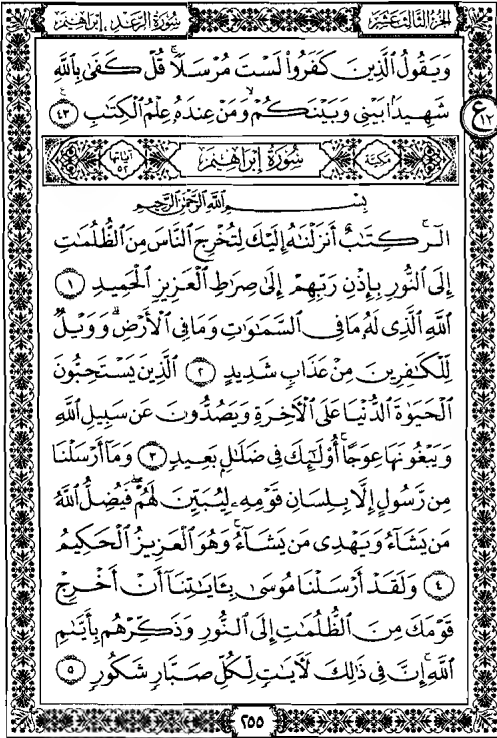 الجزء الثالث عشر
سورة الرعد، إبراهيم
وَيَقُولُ الَّذِينَ كَفَرُواْ لَسْتَ مُرْسَلاً قُلْ كَفَىٰ بِاللَّهِ
شَهِيدًا بَيْنِي وَبَيْنَكُمْ وَمَنْ عِندَهُ عِلْمُ الْكِتَابِ ٤٣
ع
١٢
مكية
سُورَةُ إِبْرَاهِيم
آياتها ٥٢
بِسْمِ اللَّهِ الرَّحْمَٰنِ الرَّحِيمِ
الر كِتَابٌ أَنزَلْنَاهُ إِلَيْكَ لِتُخْرِجَ النَّاسَ مِنَ الظُّلُمَاتِ
إِلَى النُّورِ بِإِذْنِ رَبِّهِمْ إِلَىٰ صِرَاطِ الْعَزِيزِ الْحَمِيدِ ١
اللَّهِ الَّذِي لَهُ مَا فِي السَّمَاوَاتِ وَمَا فِي الْأَرْضِ وَوَيْلٌ
لِّلْكَافِرِينَ مِنْ عَذَابٍ شَدِيدٍ ٢ الَّذِينَ يَسْتَحِبُّونَ
الْحَيَاةَ الدُّنْيَا عَلَى الْآخِرَةِ وَيَصُدُّونَ عَن سَبِيلِ اللَّهِ
وَيَبْغُونَهَا عِوَجًا أُوْلَٰئِكَ فِي ضَلَالٍ بَعِيدٍ ٣ وَمَا أَرْسَلْنَا
مِن رَّسُولٍ إِلَّا بِلِسَانِ قَوْمِهِ لِيُبَيِّنَ لَهُمْ فَيُضِلُّ اللَّهُ
مَن يَشَاءُ وَيَهْدِي مَن يَشَاءُ وَهُوَ الْعَزِيزُ الْحَكِيمُ
٤ وَلَقَدْ أَرْسَلْنَا مُوسَىٰ بِآيَاتِنَا أَنْ أَخْرِجْ
قَوْمَكَ مِنَ الظُّلُمَاتِ إِلَى النُّورِ وَذَكِّرْهُم بِأَيَّامِ
اللَّهِ إِنَّ فِي ذَٰلِكَ لَآيَاتٍ لِّكُلِّ صَبَّارٍ شَكُورٍ ٥
٢٥٥